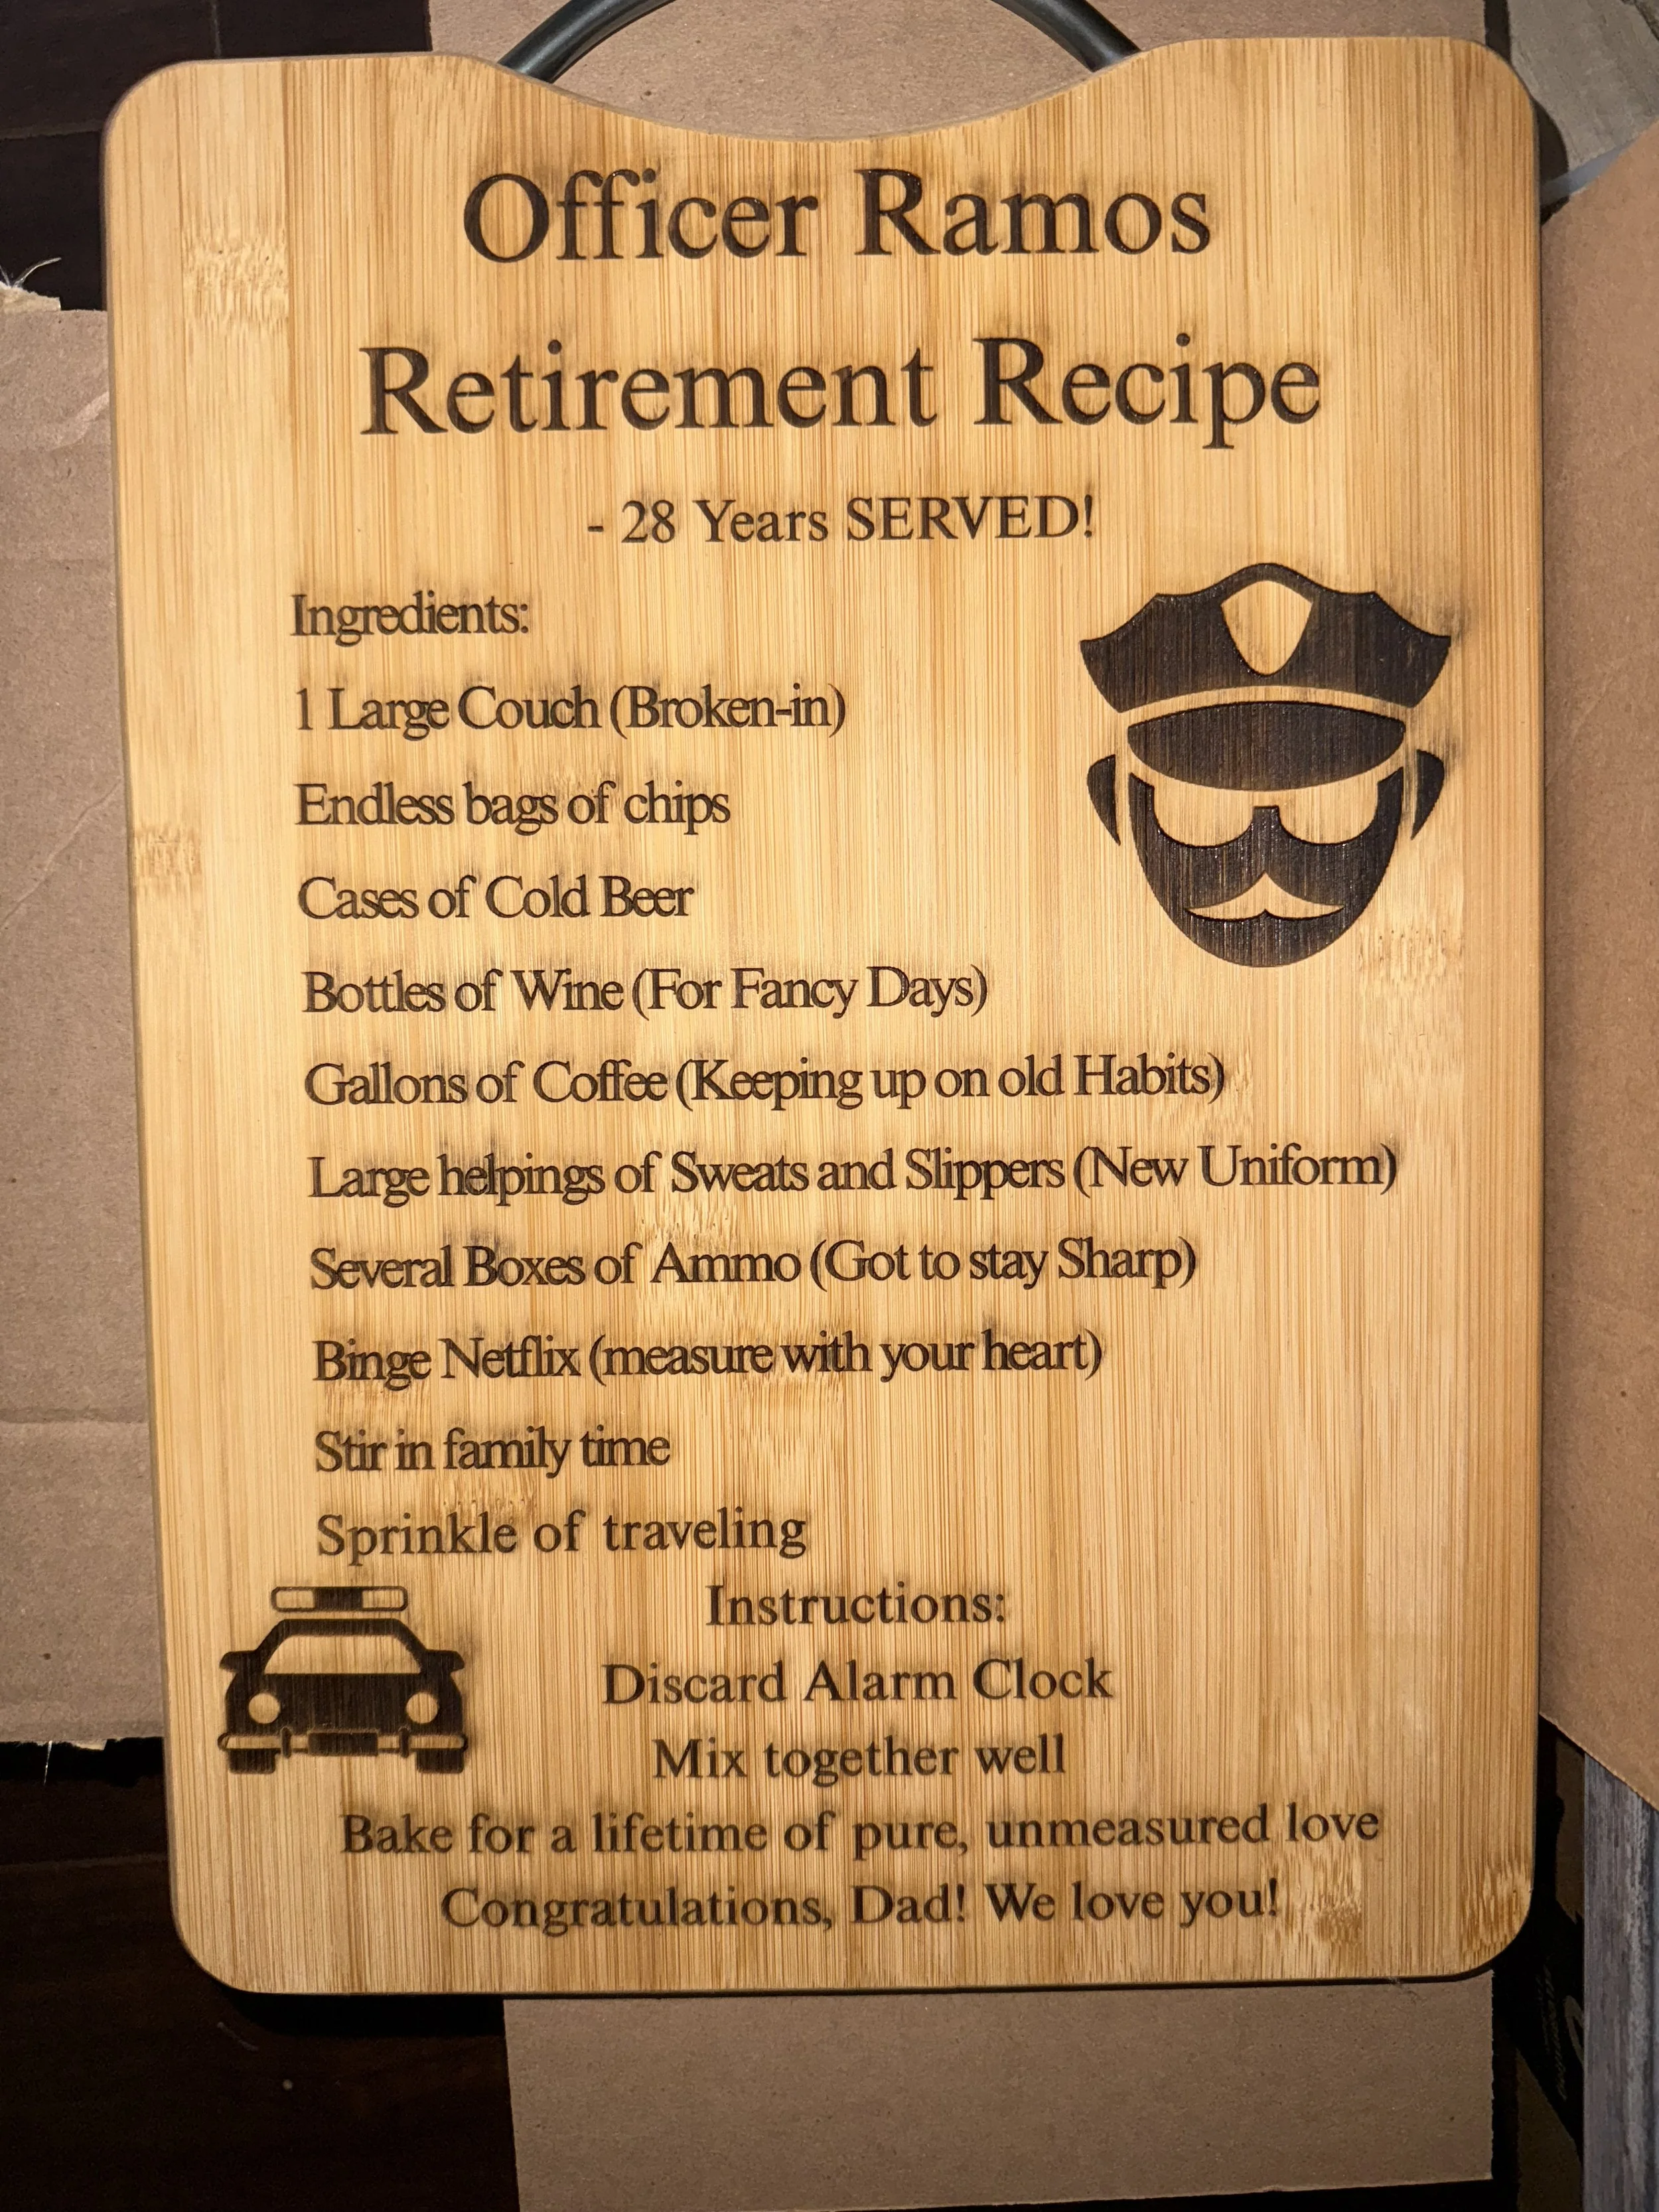 Officer Ramos
Retirement Recipe
- 28 Years SERVED!
Ingredients:
1 Large Couch (Broken-in)
Endless bags of chips
Cases of Cold Beer
Bottles of Wine (For Fancy Days)
Gallons of Coffee (Keeping up on old Habits)
Large helpings of Sweats and Slippers (New Uniform)
Several Boxes of Ammo (Got to stay Sharp)
Binge Netflix (measure with your heart)
Stir in family time
Sprinkle of traveling
Instructions:
Discard Alarm Clock
Mix together well
Bake for a lifetime of pure, unmeasured love
Congratulations, Dad! We love you!